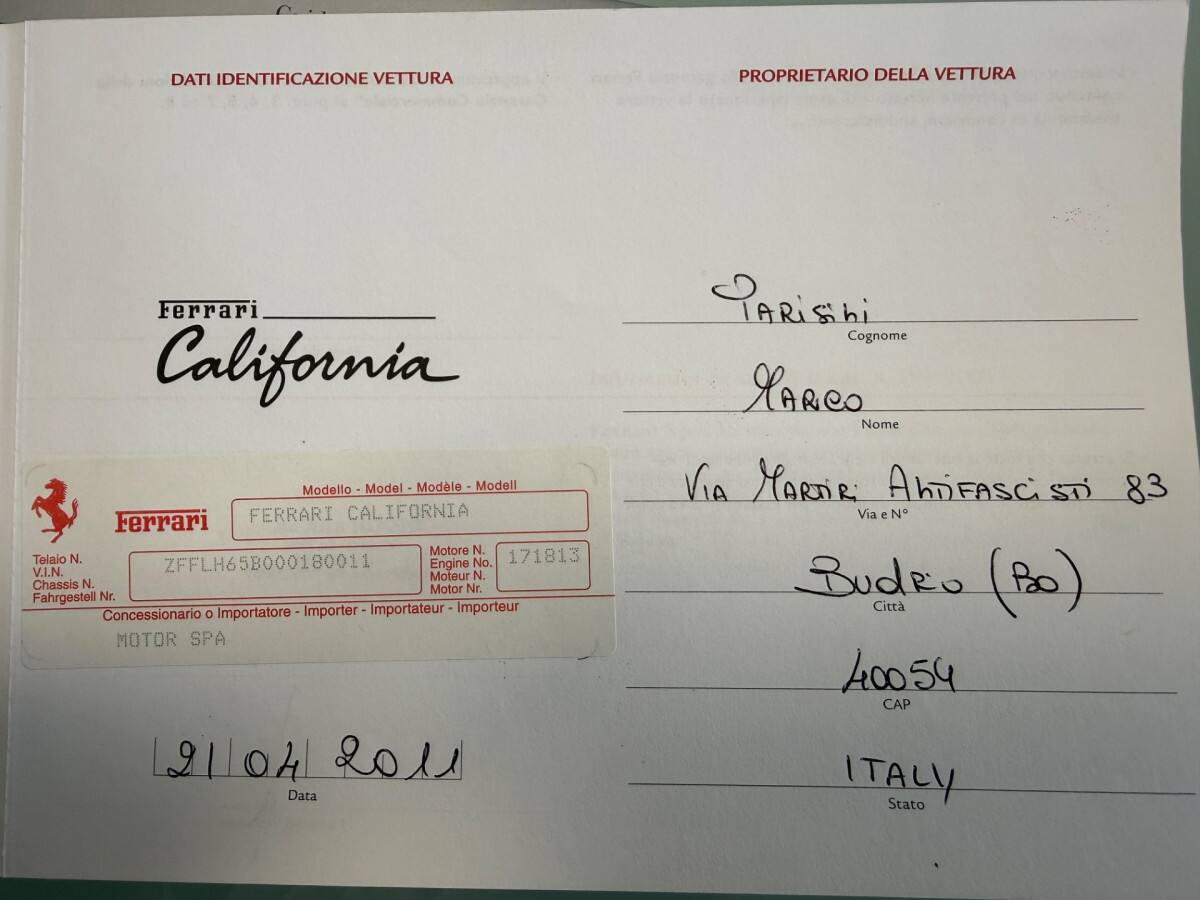 DATI IDENTIFICAZIONE VETTURA
Ferrari
California
Modello - Model - Modèle - Modell
Ferrari
FERRARI CALIFORNIA
Telaio N.
V.I.N.
Chassis N.
Fahrgestell Nr.
ZFFLH65B000180011
Motore N.
Engine No.
Moteur N.
Motor Nr.
171813
Concessionario o Importatore - Importer - Importateur - Importeur
MOTOR SPA
21 04 2011
Data
PROPRIETARIO DELLA VETTURA
PARISINI
Cognome
MARCO
Nome
VIA MARTIRI ANTIFASCISTI 83
Via e N°
BUDRIO (BO)
Città
40054
CAP
ITALY
Stato